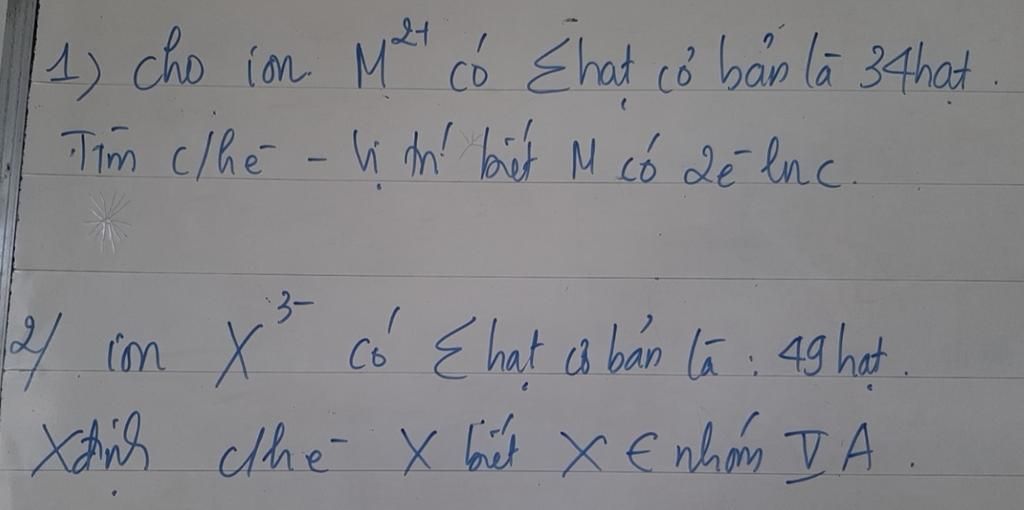 1) Cho ion M²⁺ có Σhạt cơ bản là 34hạt.
Tìm c/he - vị trí biết M có 2e lnc.
2/ ion X³⁻ có Σhạt cơ bản là : 49 hạt.
Xđịnh c/he X biết X ∈ nhóm VA.